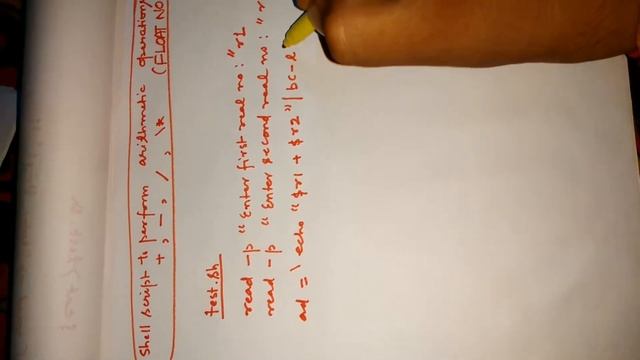 Shell script to perform arithmetic operations
+, -, /, \* (FLOAT NO
test.sh
read -p "Enter first real no: "r1
read -p "Enter second real no: "r
ad = \ echo "$r1 + $r2" | bc -l